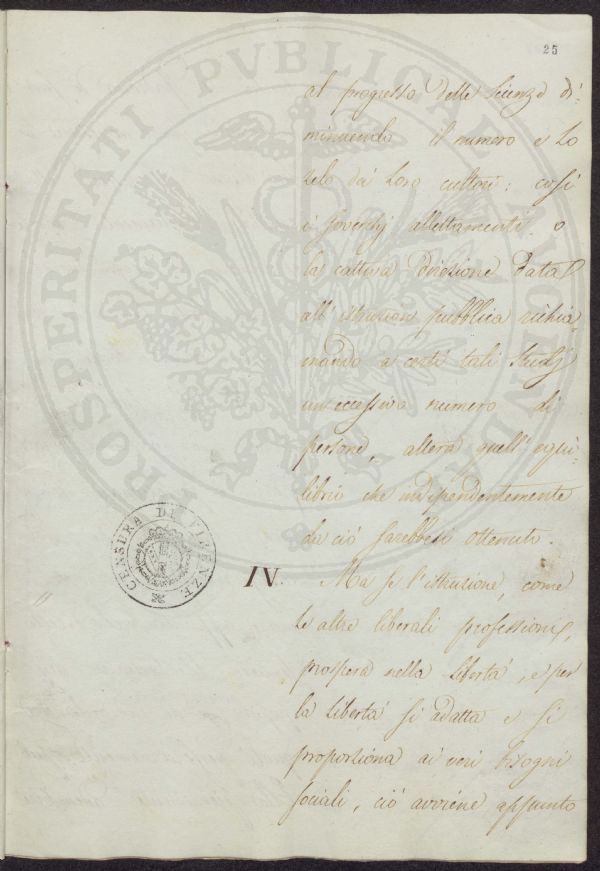 25
al progresso delle Scienze di-
minuendo il numero e lo
zelo dei loro cultori: così
i soverchj allettamenti o
la cattiva direzione data
all'istruzion pubblica richia-
mando a certi tali Studj
un eccessivo numero di
persone, altera quell'equi-
librio che indipendentemente
da ciò sarebbesi ottenuto.
IV. Ma se l'istruzione, come
le altre liberali professioni,
prospera nella libertà, e per
la libertà si adatta e si
proporziona ai veri bisogni
sociali, ciò avviene appunto
CENSURA DI FIRENZE
PROSPERITATI PVBLICAE AVGENDAE